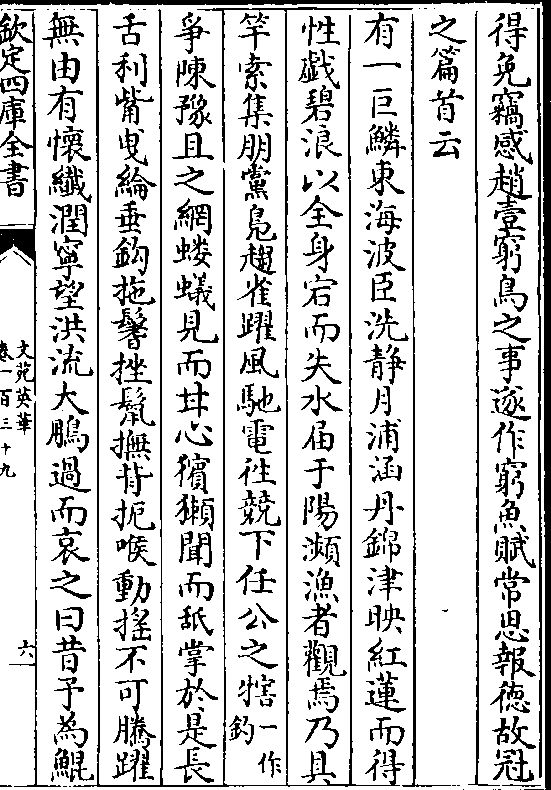 得免竊感趙壹窮鳥之事遂作窮魚賦常思報德故冠
之篇首云
有一巨鱗東海波臣洗静月浦涵丹錦津映紅蓮而得
性戯碧浪以全身宕而失水届于陽瀕漁者觀焉乃具
竿索集朋黨鳬趨雀躍風馳電徃競下任公之犗一作釣
爭陳豫且之網螻蟻見而甘心獱獺聞而舐掌於是長
舌利觜曳綸垂鈎拖鬐挫鬛撫背扼喉動揺不可騰躍
無由有懐纎潤寧望洪流大鵬過而哀之曰昔予為鯤
欽定四庫全書
文苑英華
卷一百三十九
六